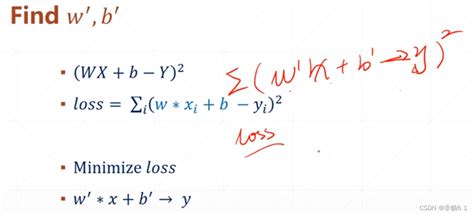 Find w', b'
▪ (WX + b − Y)²
▪ loss = ∑ᵢ(w ∗ xᵢ + b − yᵢ)²
∑(w'x + b' → y)²
loss
▪ Minimize loss
▪ w' ∗ x + b' → y